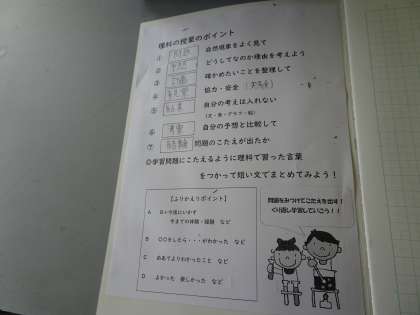 理科の授業のポイント
① 問題 自然現象をよく見て
② 予想 どうしてなのか理由を考えよう
③ 計画 確かめたいことを整理して
④ 実験 協力・安全
⑤ 結果 自分の考えは入れない
(文・表・グラフ・絵)
⑥ 考察 自分の予想と比較して
⑦ 結論 問題のこたえが出たか
◎学習問題にこたえるように理科で習った言葉
をつかって短い文でまとめてみよう!
【ふりかえりポイント】
A 日々や次にいかす
今までの体験・経験 など
B 〇〇をしたら・・・がわかった など
C めあてよりわかったこと など
D よかった 楽しかった など
問題をみつけてこたえを出す!
くり返し学習していこう!!